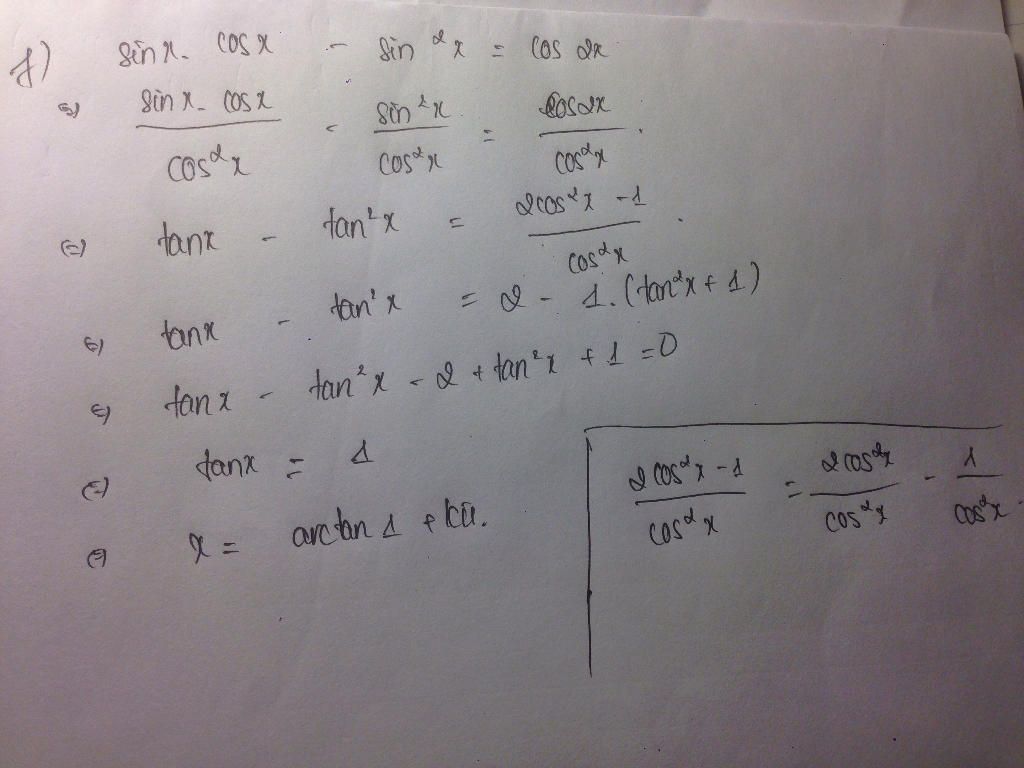 f) sin x. cos x - sin²x = cos 2x
⇔ \frac{sin x. cos x}{cos²x} - \frac{sin²x}{cos²x} = \frac{cos2x}{cos²x}.
⇔ tanx - tan²x = \frac{2cos²x - 1}{cos²x}.
⇔ tanx - tan²x = 2 - 1.(tan²x + 1)
⇔ tanx - tan²x - 2 + tan²x + 1 = 0
⇔ tanx = 1
⇔ x = arctan 1 + kπ.
\frac{2cos²x - 1}{cos²x} = \frac{2cos²x}{cos²x} - \frac{1}{cos²x}.